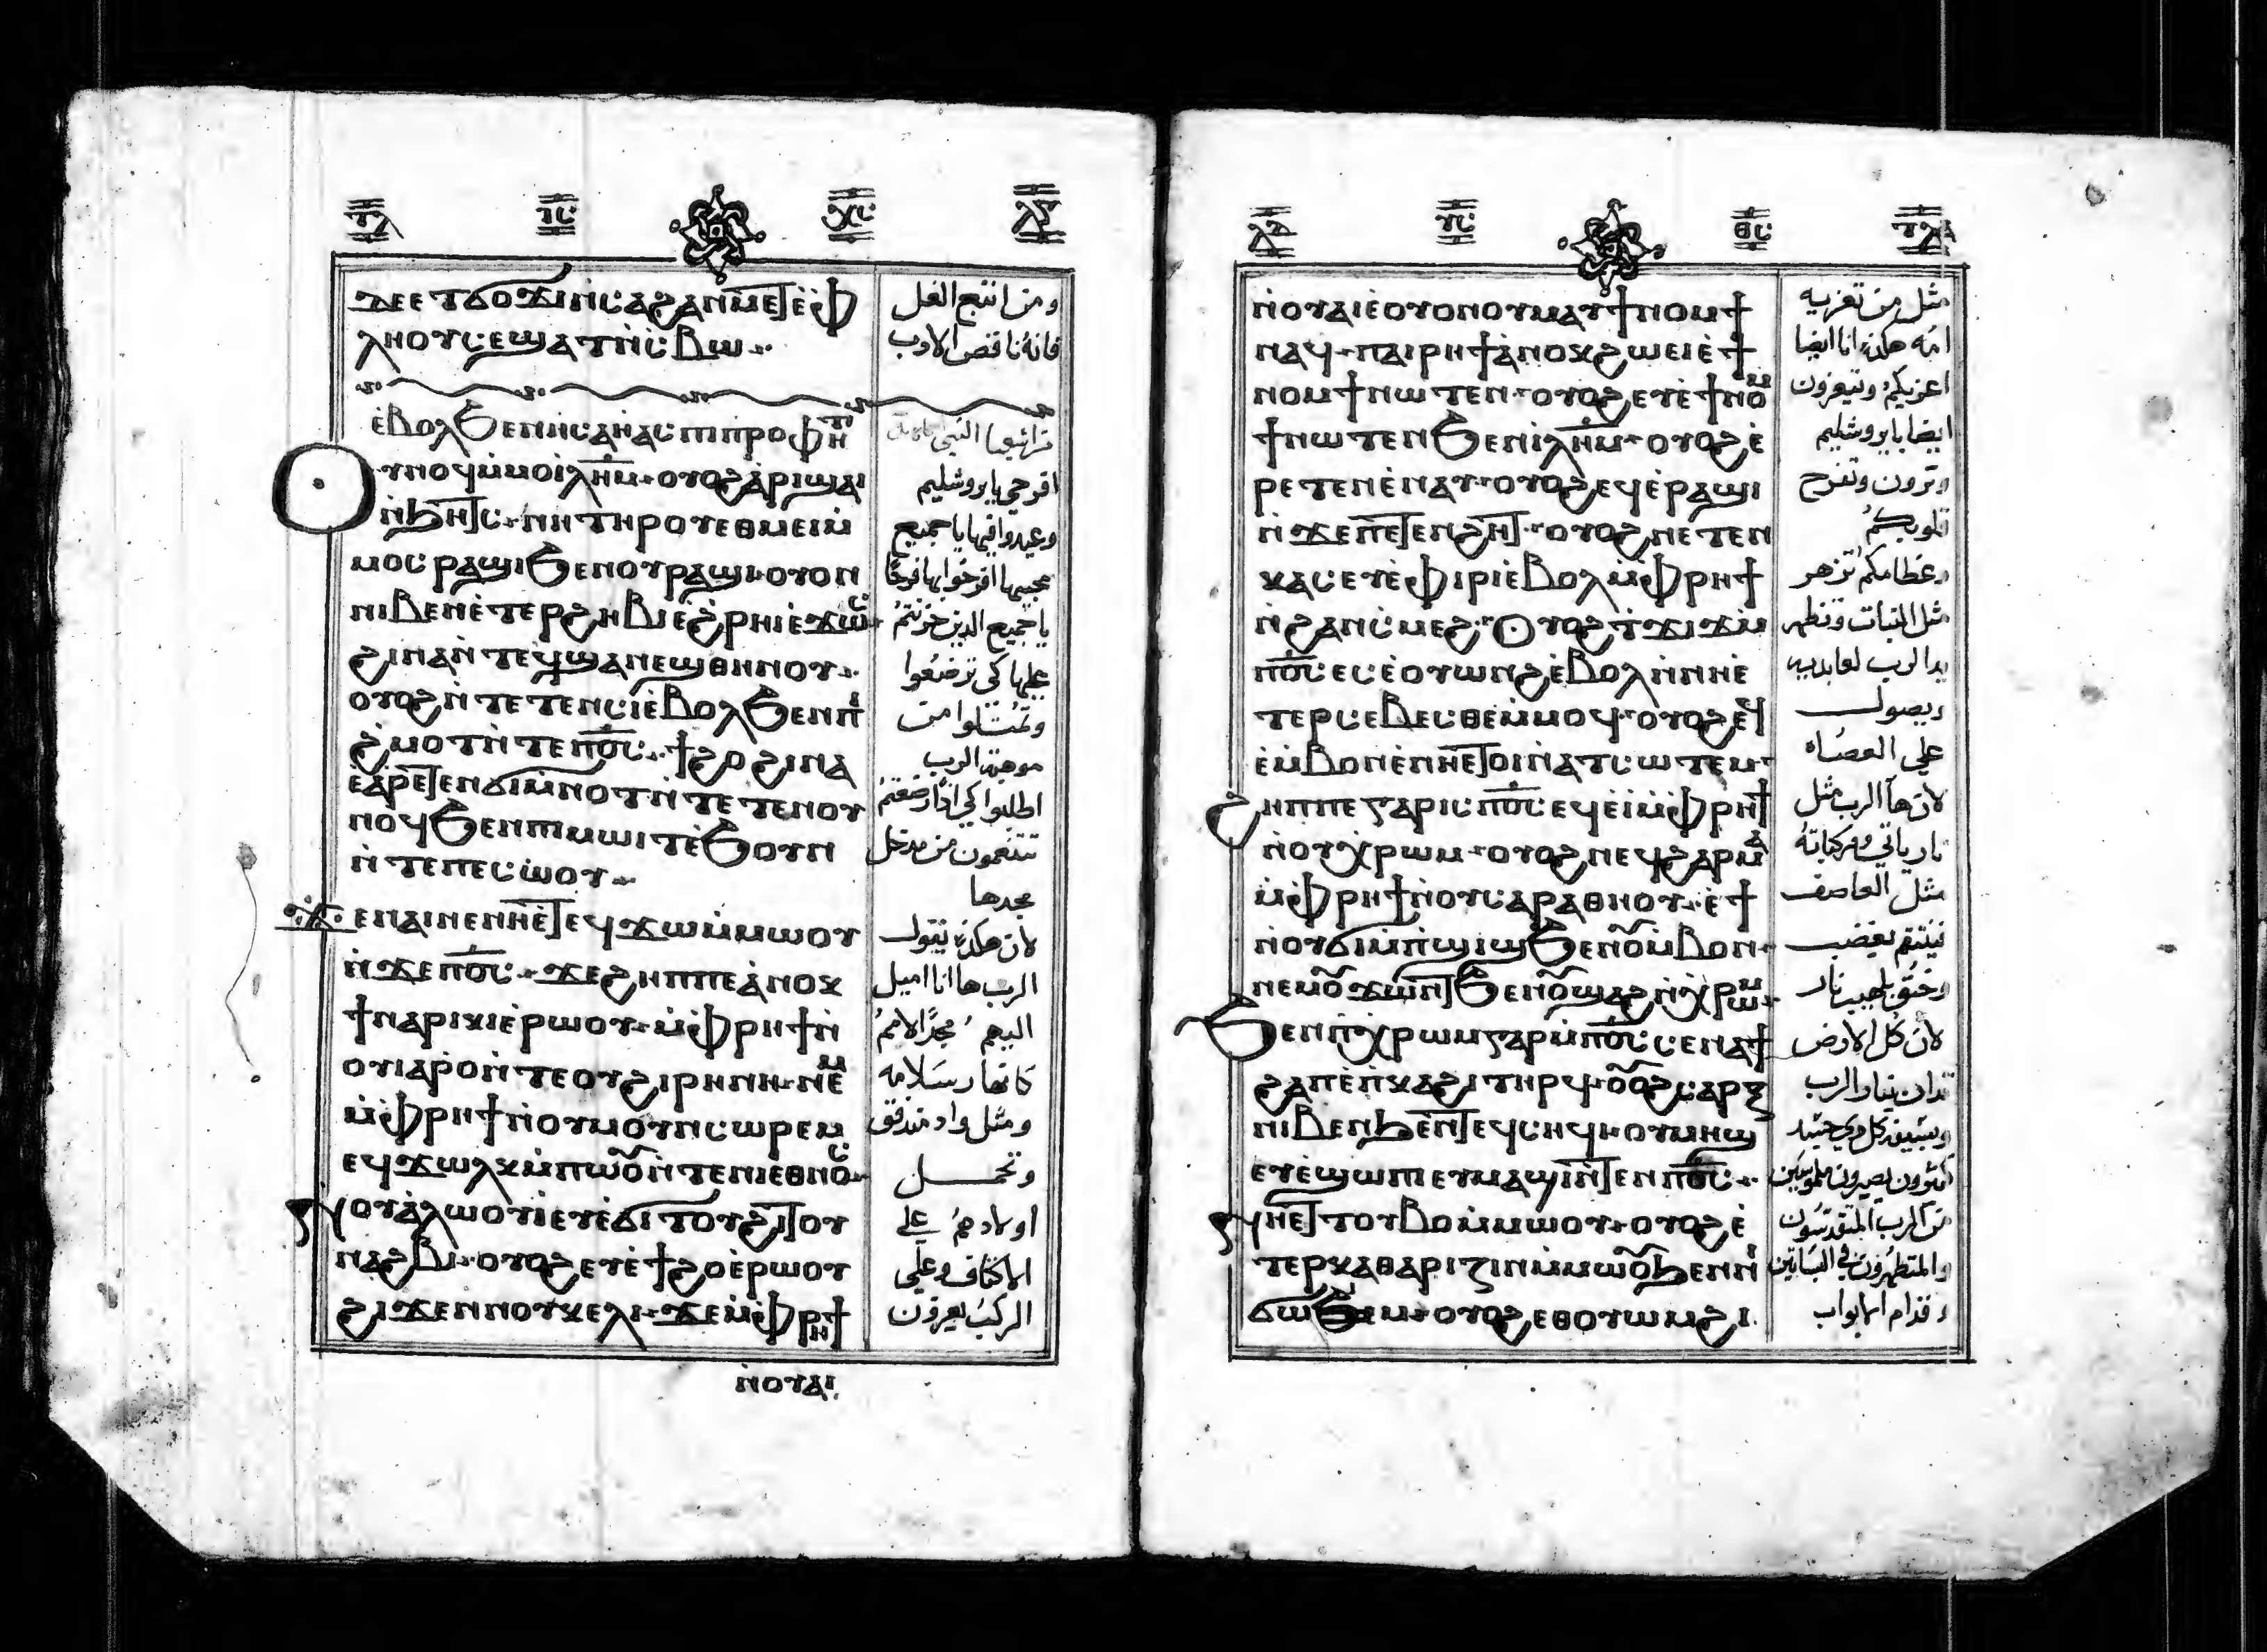 ⲇⲉ ⲉⲧϭⲟϫⲓ ⲛ̀ⲥⲁ ϩⲁⲛⲙⲉⲧⲉ̀ⲫ
ⲗⲏⲟⲩ ⲥⲉϣⲁⲧ ⲛ̀ⲥⲃⲱ
ومن اتبع الغل
فانه ناقص الادب
ⲉ̀ⲃⲟⲗϧⲉⲛ ⲏⲥⲁⲏ̀ⲁⲥ ⲡⲓⲡⲣⲟⲫⲏⲧ
ⲟⲩⲛⲟϥ ⲙ̀ⲙⲟ ⲓⲗⲏ̅ⲙ̅ ⲟⲩⲟϩ ⲁ̀ⲣⲓϣⲁⲓ
ⲛ̀ϧⲏⲧⲥ ⲛⲏ ⲧⲏⲣⲟⲩ ⲉⲑⲙⲉⲓ ⲙ̀
ⲙⲟⲥ ⲣⲁϣⲓ ϧⲉⲛ ⲟⲩⲣⲁϣⲓ ⲟⲩⲟⲛ
ⲛⲓⲃⲉⲛ ⲉ̀ⲧⲉⲣϩⲏⲃⲓ ⲉ̀ϩ̀ⲣⲏⲓ ⲉ̀ϫⲱⲥ
ϩⲓⲛⲁ ⲛ̀ⲧⲉϥϣⲁⲛⲉϣ ⲑⲏⲛⲟⲩ
ⲟⲩⲟϩ ⲛ̀ⲧⲉⲧⲉⲛⲥⲓ ⲉ̀ⲃⲟⲗϧⲉⲛ ⲡⲓ
ϩ̀ⲙⲟⲧ ⲛ̀ⲧⲉ ⲡ̅ⲟ̅ⲥ̅ ϯϩⲟ ϩⲓⲛⲁ
ⲉ̀ⲁⲣⲉⲧⲉⲛϭⲓⲙ̀ⲛⲟⲧ ⲛ̀ⲧⲉⲧⲉⲛⲟⲩ
ⲛⲟϥ ϧⲉⲛ ⲡⲓⲙⲱⲓⲧ ⲉ̀ϧⲟⲩⲛ
ⲛ̀ⲧⲉ ⲡⲉⲥⲱ̀ⲟⲩ
ϫⲉ ⲛⲁⲓ ⲛⲉ ⲛⲏⲉ̀ⲧⲉϥϫⲱ ⲙ̀ⲙⲱⲟⲩ
ⲛ̀ϫⲉ ⲡ̅ⲟ̅ⲥ̅ ϫⲉ ϩⲏⲡⲡⲉ ⲁ̀ⲛⲟⲕ
ϯⲛⲁⲣⲓⲕⲓ ⲉ̀ⲣⲱⲟⲩ ⲙ̀ⲫⲣⲏϯ ⲛ̀
ⲟⲩⲓⲁⲣⲟ ⲛ̀ⲧⲉ ⲟⲩϩⲓⲣⲏⲛⲏ ⲛⲉⲙ
ⲙ̀ⲫⲣⲏϯ ⲛ̀ⲟⲩⲙⲟⲩⲛⲥⲱⲣⲉⲙ
ⲉϥϫⲱⲗⲕ ⲙ̀ⲡⲱ̀ⲟⲩ ⲛ̀ⲧⲉ ⲛⲓⲉⲑⲛⲟⲥ
ⲛⲟⲩⲁ̀ⲗⲱⲟⲩⲓ ⲉⲩⲉ̀ϭⲓⲧⲟⲩ ϩⲓϫⲟⲩ
ⲛⲁϩⲃⲓ ⲟⲩⲟϩ ⲉⲩⲉ̀ϯϩⲟ ⲉ̀ⲣⲱⲟⲩ
ϩⲓϫⲉⲛ ⲛⲟⲩⲕⲉⲗⲓ ϫⲉ ⲙ̀ⲫⲣⲏϯ
ⲛ̀ⲟⲩⲁⲓ
افرحي يا يروشليم
وعيدوا فيها يا جميع
محبيها افرحوا بها فرحًا
يا جميع الذين حزنتم
عليها كي ترضعوا
وتمتلوا من
موهبة الرب
اطلبوا كي اذا رضعتم
تتنعمون من مدخل
مجدها
لان هكذي يقول
الرب ها انا اميل
اليهم مجد الامم
كانهار سلامه
ومثل واد متدفق
وتحمل
اولادهم علي
الاكتاف وعلي
الركب يعزون
ⲛ̀ⲟⲩⲁⲓ ⲉ̀ⲟⲩⲟⲛ ⲟⲩⲙⲁⲩ ϯⲛⲟⲙϯ
ⲛⲁϥ ⲡⲁⲓⲣⲏϯ ⲁ̀ⲛⲟⲕ ϩⲱ ⲉⲓⲉ̀ϯ
ⲛⲟⲙϯ ⲛⲱⲧⲉⲛ ⲟⲩⲟϩ ⲉⲩⲉ̀ϯⲛⲟⲙ
ϯ ⲛⲱⲧⲉⲛ ϧⲉⲛ ⲓⲗⲏ̅ⲙ̅ ⲟⲩⲟϩ ⲉ̀
ⲣⲉⲧⲉⲛⲉ̀ⲛⲁⲩ ⲟⲩⲟϩ ⲉϥⲉ̀ⲣⲁϣⲓ
ⲛ̀ϫⲉ ⲡⲉⲧⲉⲛϩⲏⲧ ⲟⲩⲟϩ ⲛⲉⲧⲉⲛ
ⲕⲁⲥ ⲉⲩⲉ̀ⲫⲓⲣⲓ ⲉ̀ⲃⲟⲗ ⲙ̀ⲫⲣⲏϯ
ⲛ̀ϩⲁⲛⲥⲓⲙ ⲉϩ ⲟⲩⲟϩ ⲧϫⲓϫ ⲙ̀
ⲡ̅ⲟ̅ⲥ̅ ⲉⲥⲉ̀ⲟⲩⲱⲛϩ ⲉ̀ⲃⲟⲗ ⲛ̀ⲛⲏⲉ̀
ⲧⲉⲣⲥⲉⲃⲉⲥⲑⲉ ⲙ̀ⲙⲟϥ ⲟⲩⲟϩ ⲉϥ
ⲉ̀ⲙ̀ⲃⲟⲛ ⲉ̀ⲛⲏⲉⲧⲟⲓ ⲛ̀ⲁⲧⲥⲱⲧⲉⲙ
ϩⲏⲡⲡⲉ ⲅⲁⲣ ⲓⲥ ⲡ̅ⲟ̅ⲥ̅ ⲉϥⲉ̀ⲓ̀ ⲙ̀ⲫⲣⲏϯ
ⲛ̀ⲟⲩⲭⲣⲱⲙ ⲟⲩⲟϩ ⲛⲉϥϩⲁⲣⲙⲁ
ⲙ̀ⲫⲣⲏϯ ⲛ̀ⲟⲩⲥⲁⲣⲁⲑⲏⲟⲩ ⲉ̀ϯ
ⲛ̀ⲟⲩϭⲓⲙ̀ⲡ̀ϣⲓϣ ϧⲉⲛ ⲟⲩⲙ̀ⲃⲟⲛ
ⲛⲉⲙ ⲟⲩϫⲱⲛⲧ ϧⲉⲛ ⲟⲩϣⲁϩ ⲛ̀ⲭⲣⲱⲙ
ϧⲉⲛ ⲡⲓⲭⲣⲱⲙ ⲅⲁⲣ ⲙ̀ⲡ̅ⲟ̅ⲥ̅ ⲥⲉⲛⲁϯ
ϩⲁⲡ ⲉ̀ⲡ̀ⲕⲁϩⲓ ⲧⲏⲣϥ ⲟⲩⲟϩ ⲥⲁⲣⲝ
ⲛⲓⲃⲉⲛ ϧⲉⲛ ⲧⲉϥⲥⲏϥⲓ ⲟⲩⲙⲏϣ
ⲉⲩⲉ̀ϣⲱⲡⲓ ⲉⲩⲙⲁϣⲓ ⲛ̀ⲧⲉⲛ ⲡ̅ⲟ̅ⲥ̅
ⲛⲏⲉⲧⲧⲟⲩⲃⲟ ⲙ̀ⲙⲱⲟⲩ ⲟⲩⲟϩ ⲉ̀
ⲧⲉⲣⲕⲁⲑⲁⲣⲓⲍⲓⲛ ⲙ̀ⲙⲱⲟⲩ ϧⲉⲛ ⲛⲓ
ϭⲱⲙ ⲟⲩⲟϩ ⲉⲑⲟⲩⲱⲙ ϩⲓ
مثل من تعزيه
امه هكذي انا ايضا
اعزيكم وتتعزون
ايضا بايروشليم
وترون وتفرح
قلوبكم
وعظامكم تزهر
مثل النبات وتظهر
يد الرب لعابديه
ويصول
علي العصاه
لان ها الرب مثل
نار ياتي ومركباته
مثل العاصف
فينتقم بغضب
وحنق بلهيب نار
لان كل الارض
تدان بنار الرب
وبسيفه كل ذي جسد
كثيرون يصيرون
من الرب المتقدسون
والمتطهرون في البساتين
وقدام الابواب